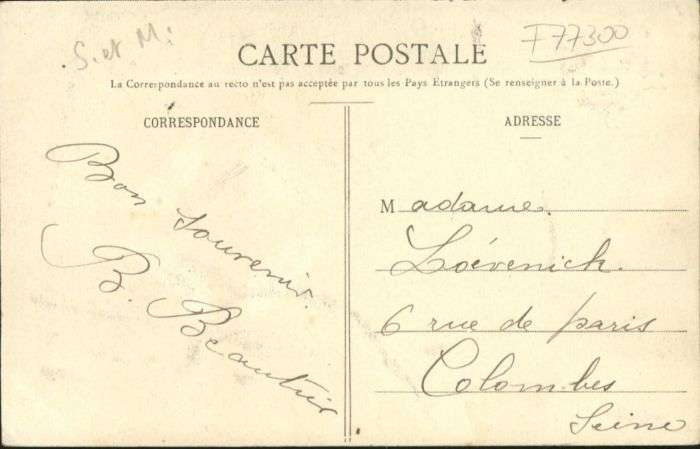 S. et M:
F77300
CARTE POSTALE
La Correspondance au recto n'est pas acceptée par tous les Pays Etrangers (Se renseigner à la Poste.)
CORRESPONDANCE
Bon souvenir.
B. Beautier
ADRESSE
Madame.
Loévenich.
6 rue de paris
Colombes
Seine